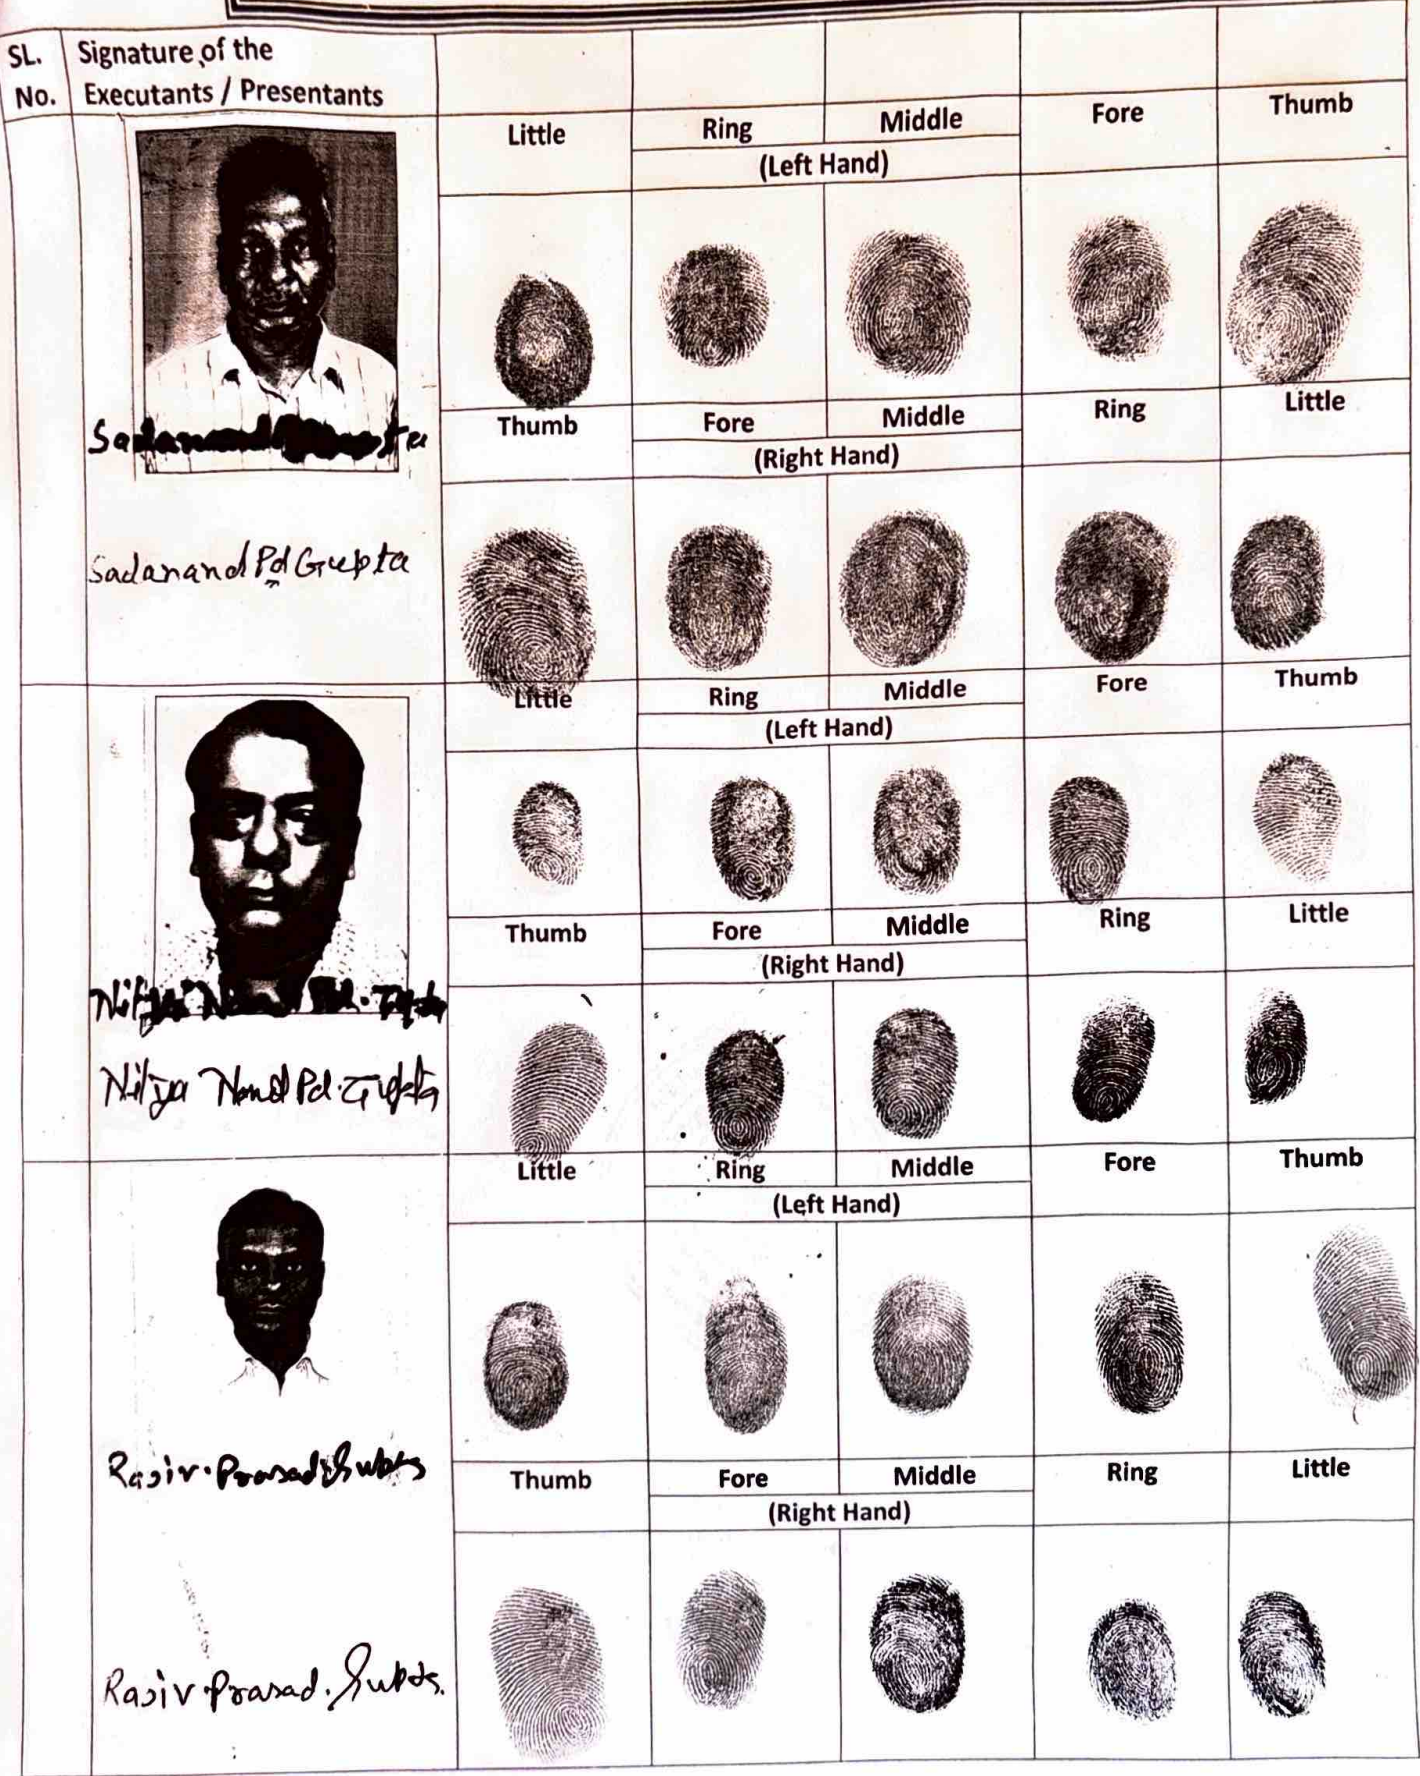 SL. No. Signature of the Executants / Presentants
Little Ring Middle Fore Thumb
(Left Hand)
Sadanand
Thumb Fore Middle Ring Little
(Right Hand)
Sadanand Pd Gupta
Little Ring Middle Fore Thumb
(Left Hand)
Thumb Fore Middle Ring Little
(Right Hand)
Nitya Nand Pd. Gupta
Little Ring Middle Fore Thumb
(Left Hand)
Rajiv. Prasad Gupta
Thumb Fore Middle Ring Little
(Right Hand)
Rajiv Prasad. Gupta.